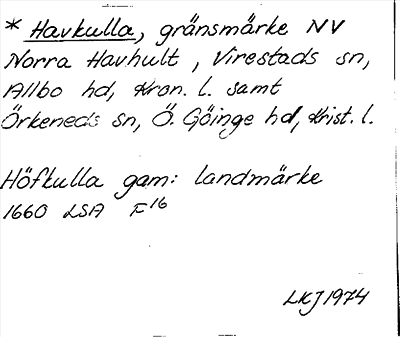 * Havkulla, gränsmärke NV
Norra Havhult, Virestads sn,
Allbo hd, Kron. l. samt
Örkeneds sn, Ö. Göinge hd, Krist. l.
Höfkulla gam: landmärke
1660 LSA F16
LKJ 1974